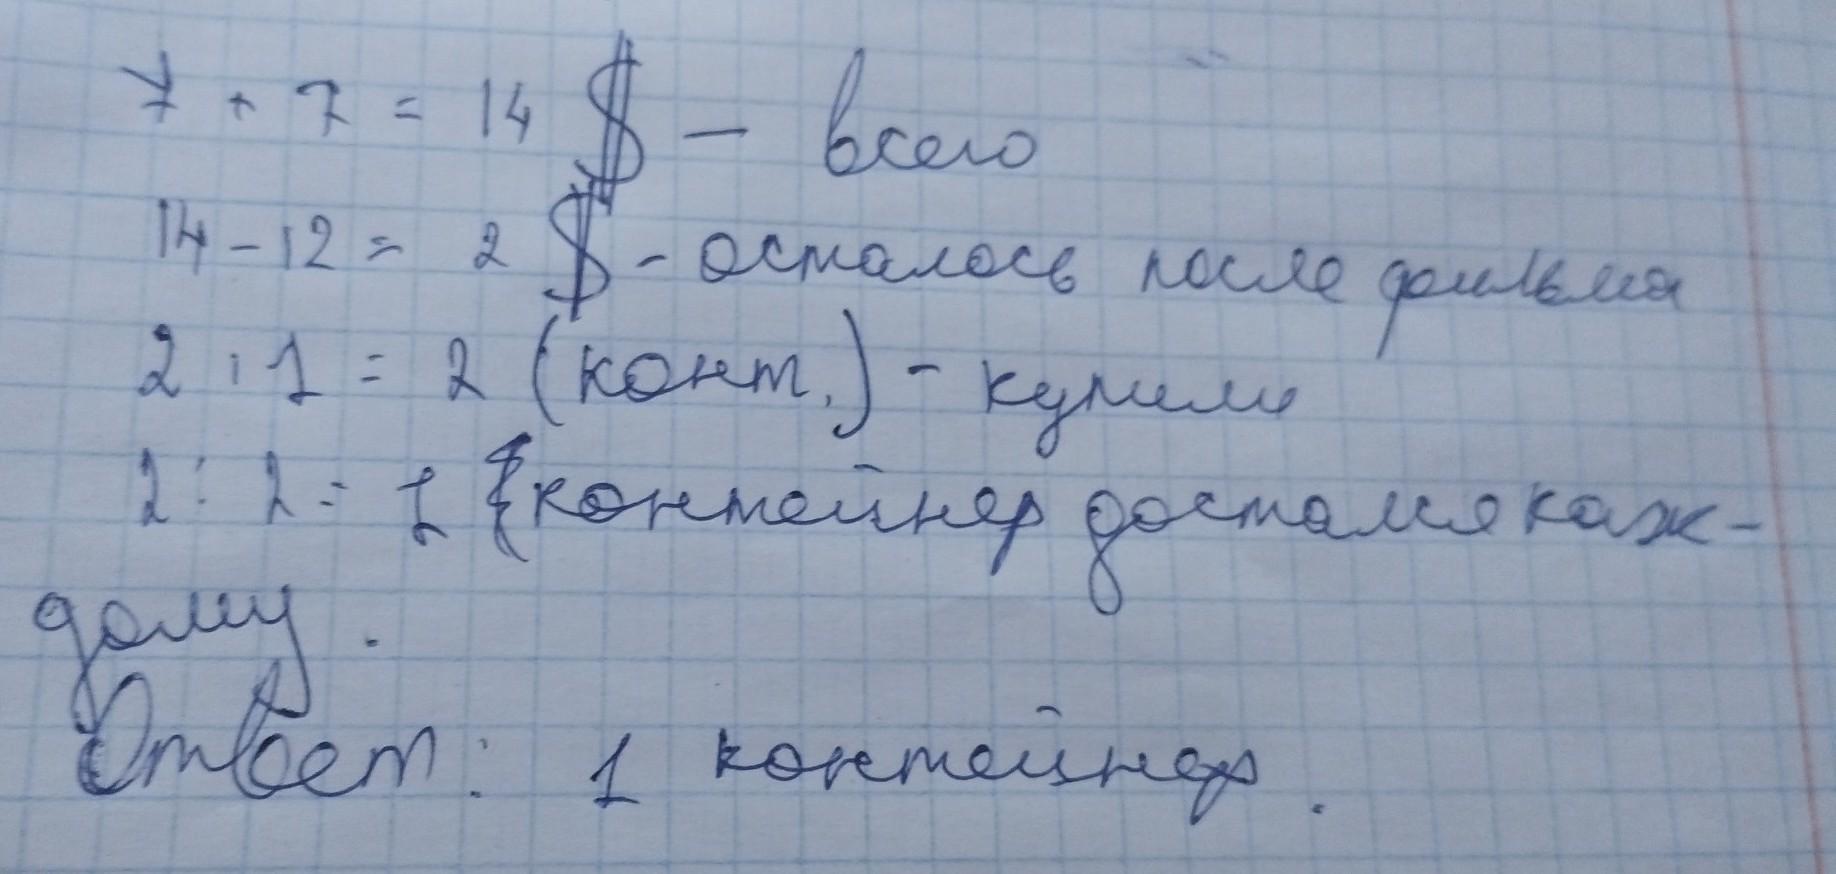 7 + 7 = 14 $ - всего
14 - 12 = 2 $ - осталось после фильма
2 : 1 = 2 (конт.) - купили
2 : 2 = 1 {контейнер достался каж-
дому.
Ответ: 1 контейнер.